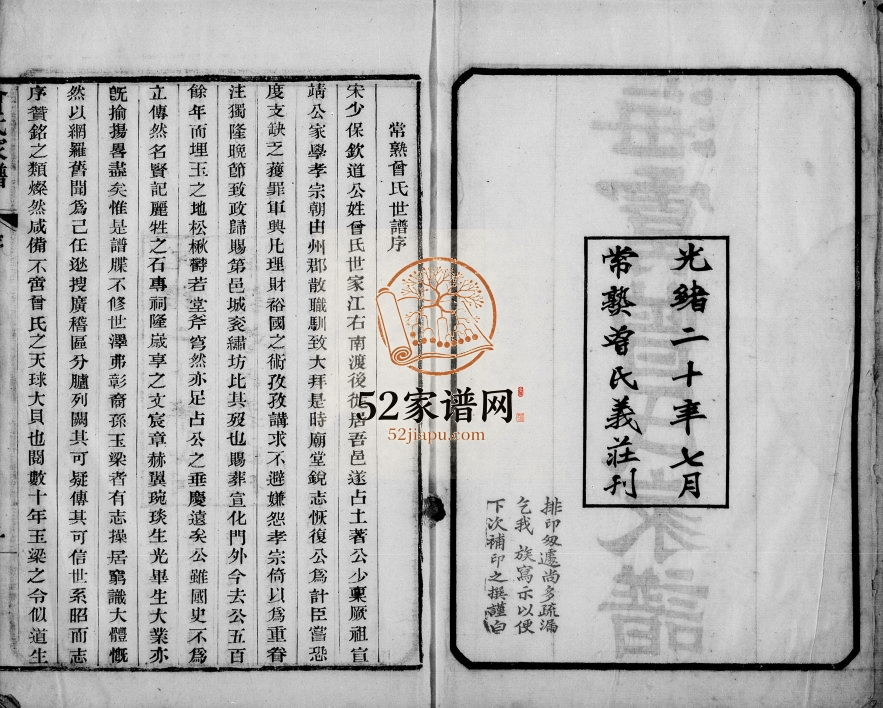 光緒二十年七月
常熟曾氏義莊刊
排印匆遽尚多疏漏
乞我 族寫示以便
下次補印之撰謹白
常熟曾氏世譜序
宋少保欽道公姓曾氏世家江右南渡後徙居吾邑遂占土著公少稟厥祖宣
靖公家學孝宗朝由州郡散職馴致大拜是時廟堂銳志恢復公為計臣嘗恐
度支缺乏獲罪軍興凡理財裕國之術孜孜講求不避嫌怨孝宗倚以為重眷
注獨隆晚節致政歸賜第邑城衮繡坊比其歿也賜葬宣化門外今去公五百
餘年而埋玉之地松楸欝若堂斧穹然亦足占公之垂慶遠矣公雖國史不為
立傳然名賢記麗牲之石專祠隆歲享之文宸章赫翼琬琰生光畢生大業亦
旣揄揚畧盡矣惟是譜牒不修世澤弗彰裔孫玉梁者有志操居窮識大體慨
然以網羅舊聞為己任逖搜廣稽區分臚列闕其可疑傳其可信世系昭而志
序贊銘之類燦然咸備不啻曾氏之天球大貝也閱數十年玉梁之令似道生
52家谱网
52jiapu.com